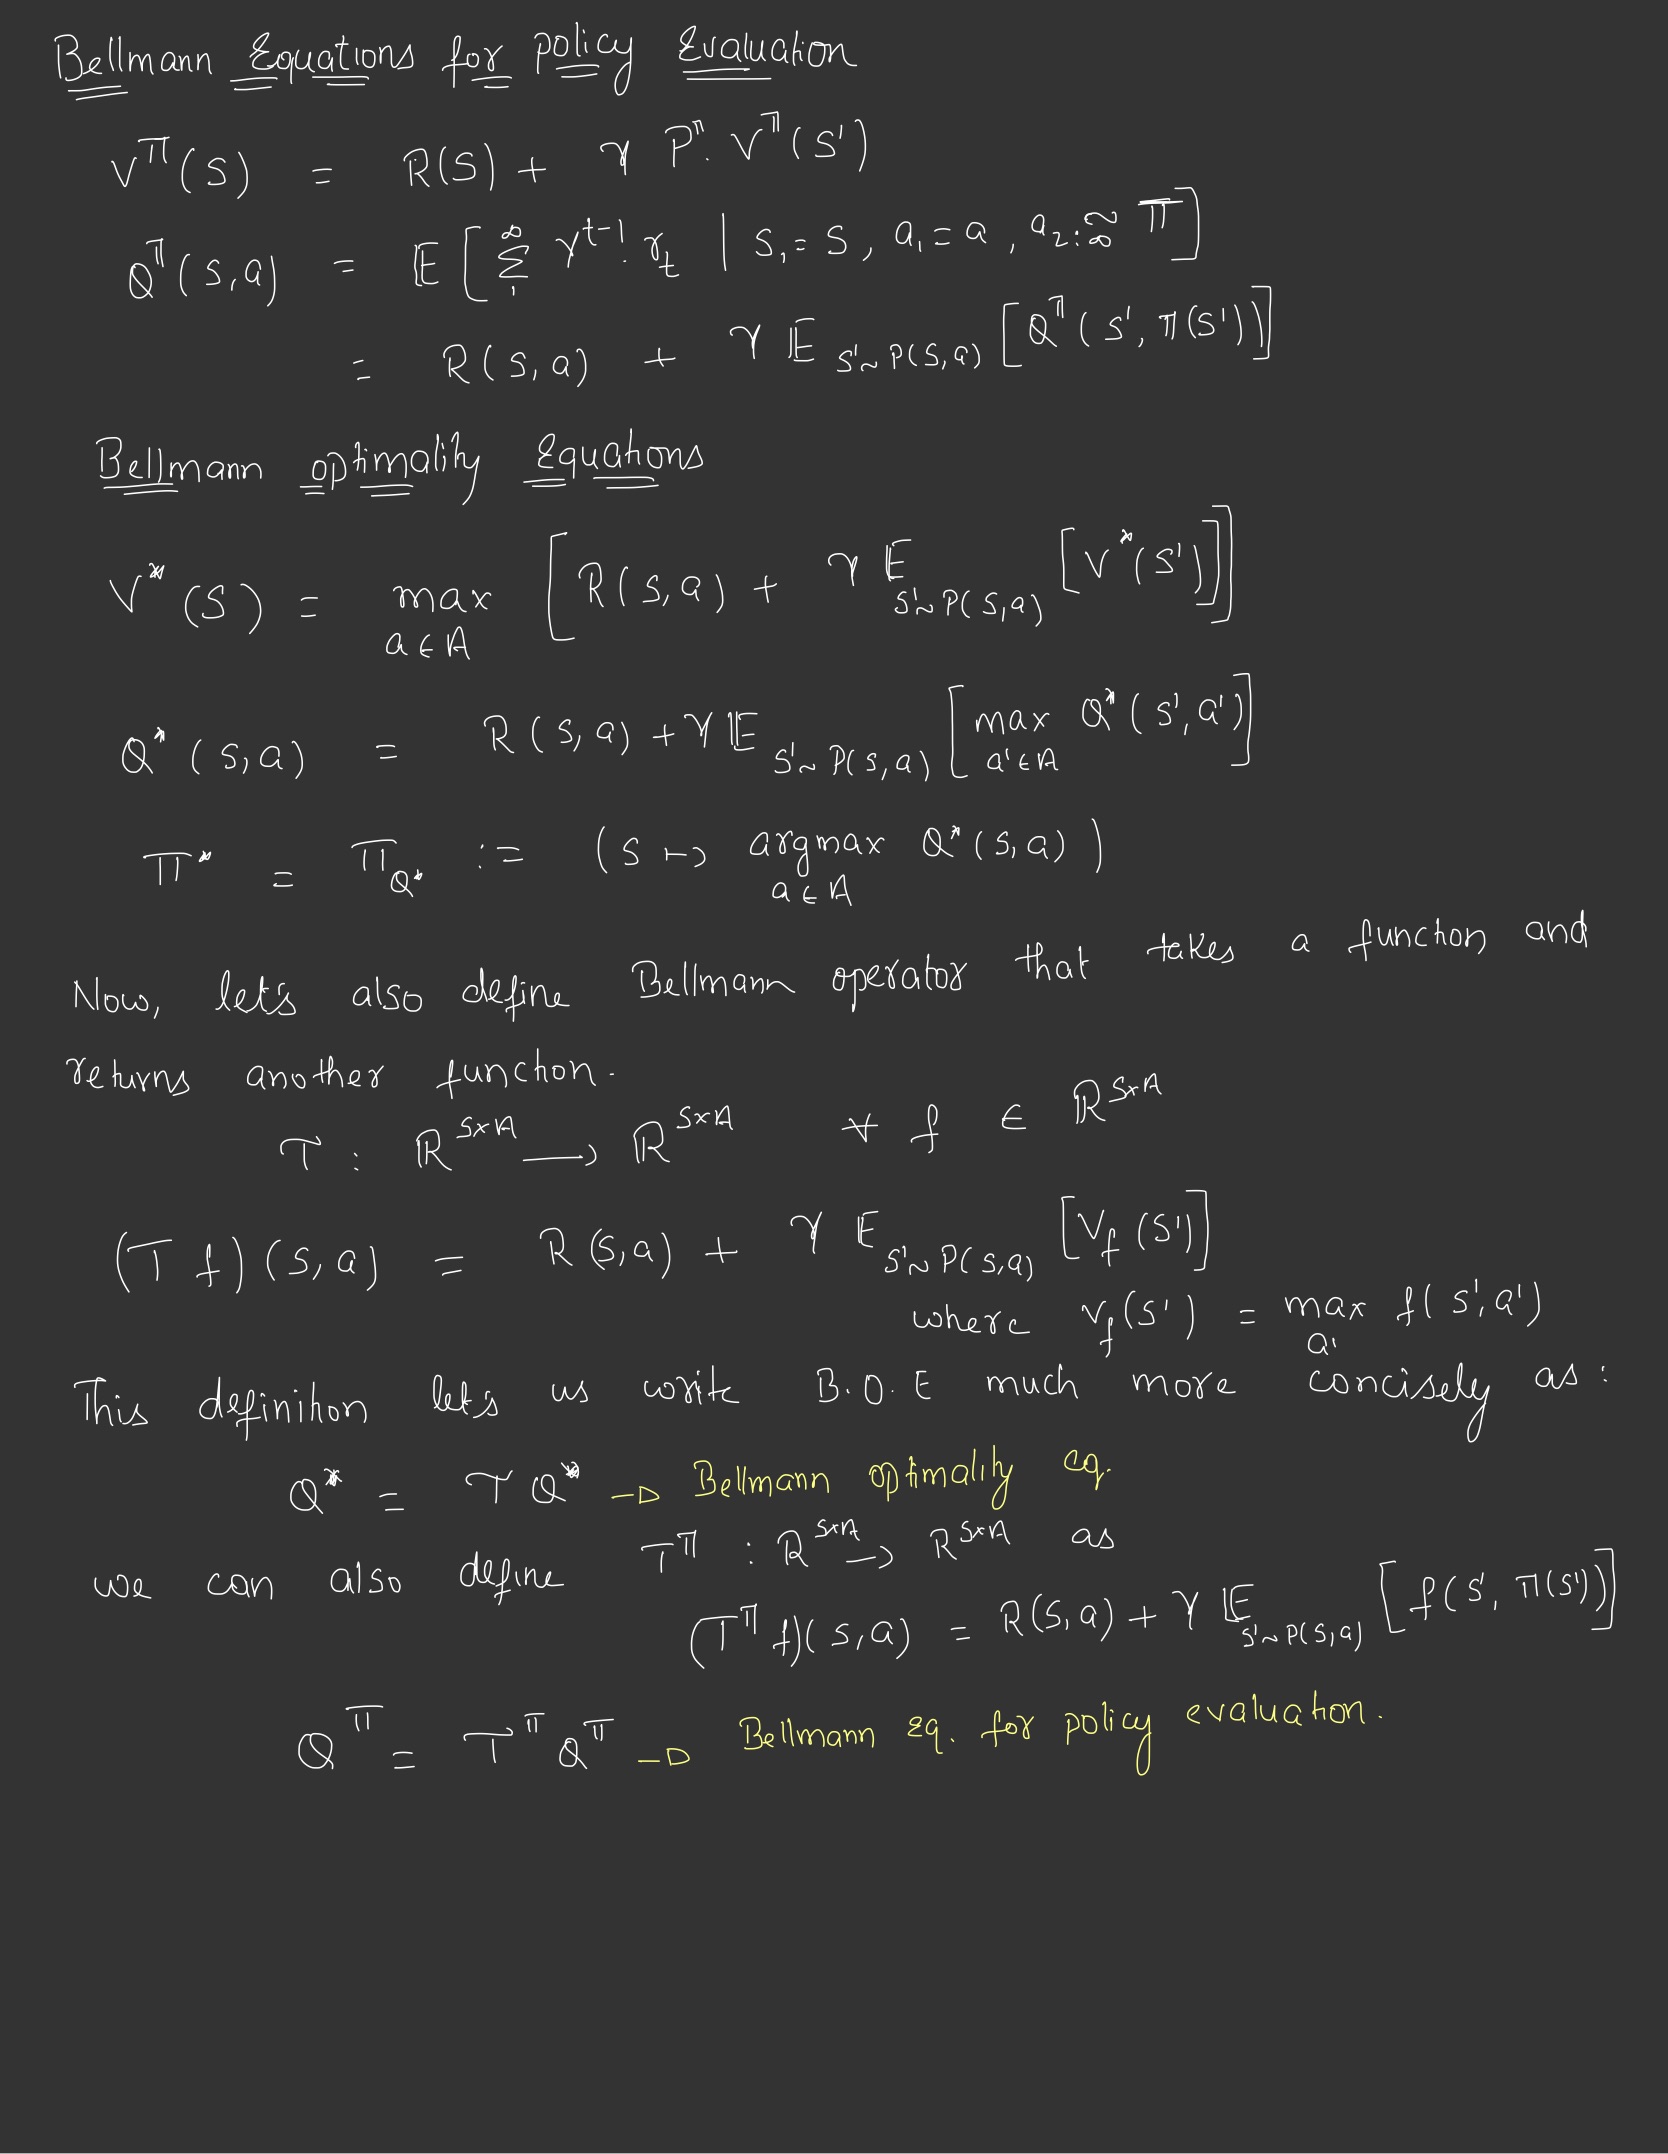 Bellmann Equations for policy Evaluation
V^π(s) = R(s) + γ P^π. V^π(s')
Q^π(s,a) = 𝔼[∑_1^∞ γ^{t-1}. r_t | s_1 = s, a_1 = a, a_{2:∞} ~ π]
= R(s,a) + γ 𝔼_{s'~P(s,a)} [Q^π(s', π(s'))]
Bellmann optimality Equations
V*(s) = max_{a∈A} [R(s,a) + γ 𝔼_{s'~P(s,a)} [V*(s')]]
Q*(s,a) = R(s,a) + γ 𝔼_{s'~P(s,a)} [max_{a'∈A} Q*(s',a')]
π* = π_{Q*} := (s ↦ argmax_{a∈A} Q*(s,a))
Now, let's also define Bellmann operator that takes a function and
returns another function.
T : ℝ^{S×A} → ℝ^{S×A} ∀ f ∈ ℝ^{S×A}
(T f)(s,a) = R(s,a) + γ 𝔼_{s'~P(s,a)} [V_f(s')]
where V_f(s') = max_{a'} f(s',a')
This definition let's us write B.O.E much more concisely as:
Q* = T Q* → Bellmann optimality eq.
we can also define T^π : ℝ^{S×A} → ℝ^{S×A} as
(T^π f)(s,a) = R(s,a) + γ 𝔼_{s'~P(s,a)} [f(s', π(s'))]
Q^π = T^π Q^π → Bellmann Eq. for policy evaluation.